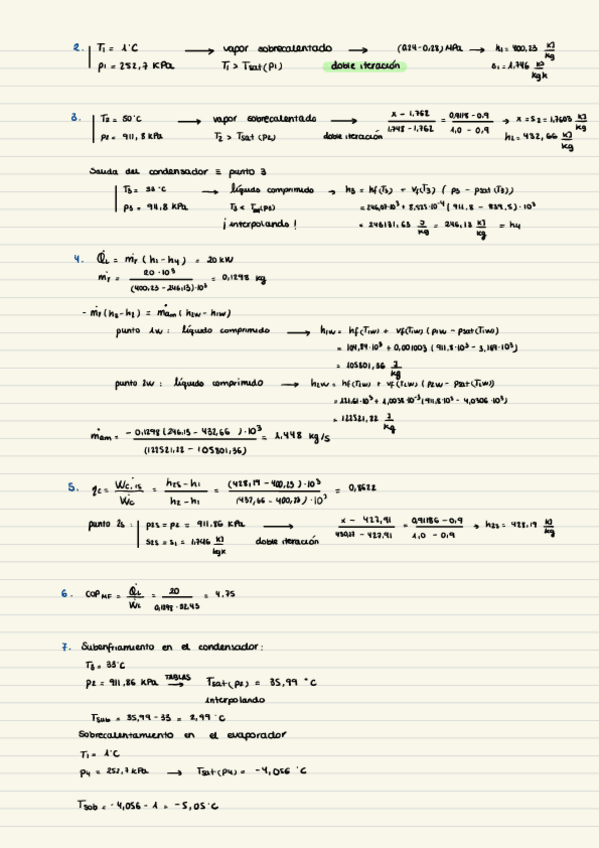 2. T₁ = 1°C → vapor sobrecalentado → (0.24-0.28) MPa → h₁ = 400,23 kJ/kg
p₁ = 252,7 kPa T₁ > Tsat(p₁) doble iteración s₁ = 1.746 kJ/kgK
3. T₂ = 50°C → vapor sobrecalentado → (x - 1,762)/(1.748 - 1,762) = (0,9118 - 0.9)/(1,0 - 0.9) → x = s₂ = 1.7603 kJ/kg
p₂ = 911,8 kPa T₂ > Tsat(p₂) doble iteración h₂ = 432,66 kJ/kg
Salida del condensador ≡ punto 3
T₃ = 33°C → líquido comprimido → h₃ = hf(T₃) + vf(T₃) (p₃ - psat(T₃))
p₃ = 911.8 kPa T₃ < Tsat(p₃) = 246,07·10³ + 8,523·10⁻⁴ (911.8 - 839,5)·10³
¡interpolando! = 246131,63 J/kg = 246,13 kJ/kg = h₄
4. Q̇L = ṁr (h₁ - h₄) = 20 kW
ṁr = 20·10³/((400,23 - 246,13)·10³) = 0,1298 kg
- ṁr (h₃ - h₂) = ṁam (h₂w - h₁w)
punto 1w: líquido comprimido → h₁w = hf(T₁w) + vf(T₁w) (p₁w - psat(T₁w))
= 104,89·10³ + 0,001003 (911,8·10³ - 3,169·10³)
= 105801,36 J/kg
punto 2w: líquido comprimido → h₂w = hf(T₂w) + vf(T₂w) (p₂w - psat(T₂w))
= 121.61·10³ + 1,0038·10⁻³ (911,8·10³ - 4,0306·10³)
= 122521,22 J/kg
ṁam = - 0,1298 (246.13 - 432,66)·10³/(122521,22 - 105801,36) = 1,448 kg/s
5. ηc = Ẇc,is/Ẇc = (h₂s - h₁)/(h₂ - h₁) = (428,19 - 400,23)·10³/(432,66 - 400,23)·10³ = 0,8622
punto 2s: p₂s = p₂ = 911,86 kPa → (x - 427,91)/(430,27 - 427,91) = (0,91186 - 0,9)/(1,0 - 0,9) → h₂s = 428,19 kJ/kg
s₂s = s₁ = 1.746 kJ/kgK doble iteración
6. COP MF = Q̇L/Ẇc = 20/(0,1298·32.43) = 4.75
7. Subenfriamiento en el condensador:
T₃ = 33°C
p₂ = 911,86 kPa TABLAS → Tsat(p₂) = 35,99 °C
interpolando
Tsub = 35,99 - 33 = 2,99 °C
Sobrecalentamiento en el evaporador
T₁ = 1°C
p₄ = 252,7 kPa → Tsat(p₄) = -4,056 °C
Tsob = -4,056 - 1 = -5,05°C